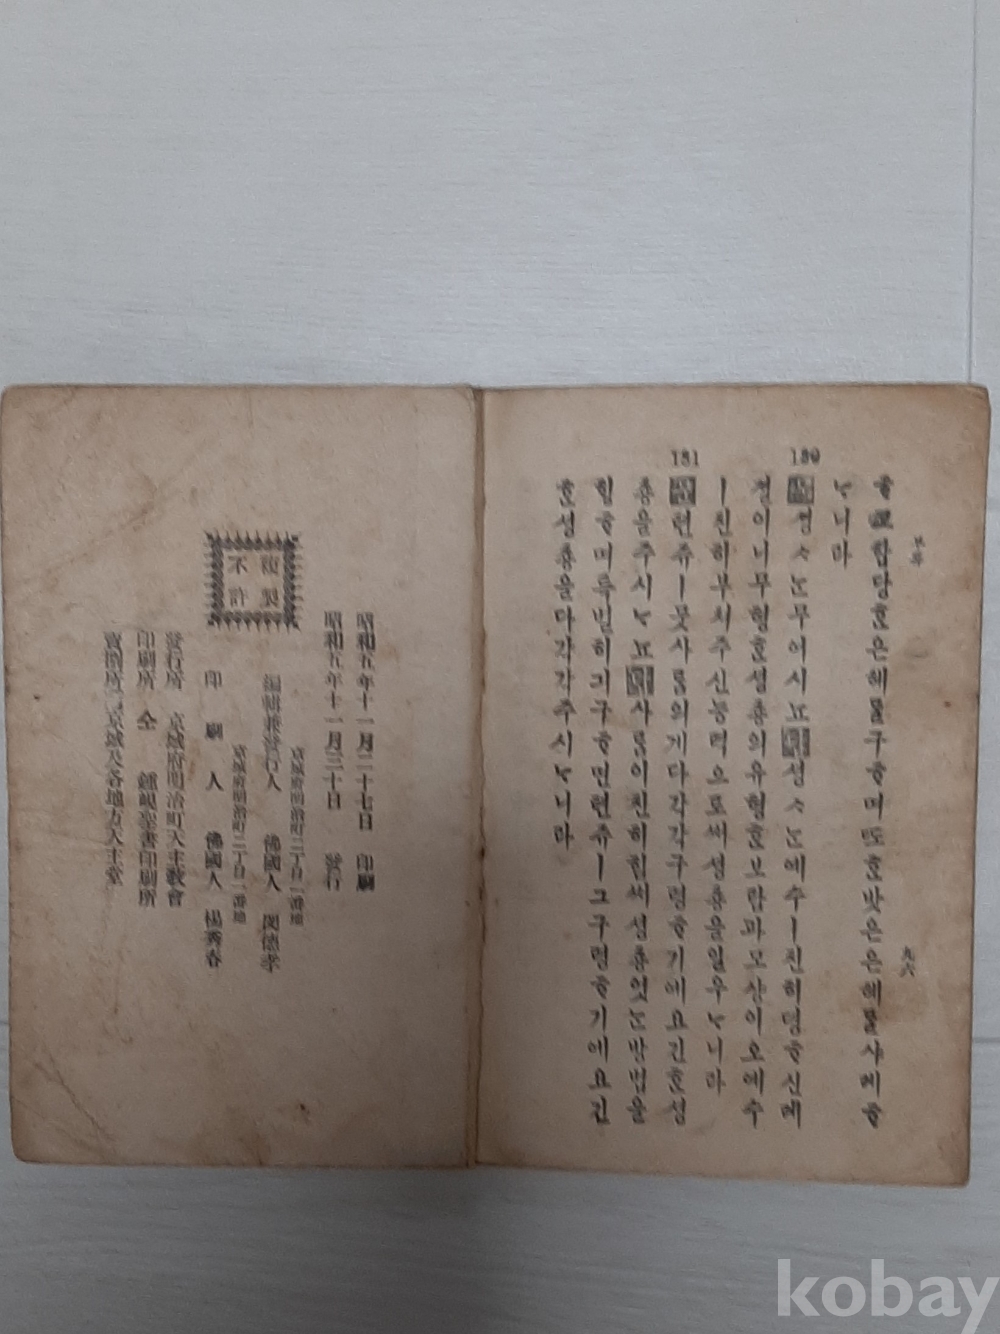 부록
九六
ᄒᆞ며 합당ᄒᆞᆫ은혜ᄅᆞᆯ구ᄒᆞ며ᄯᅩᄒᆞᆫ밧은은혜ᄅᆞᆯ샤례ᄒᆞ
ᄂᆞ니라
130
셩ᄉᆞᄂᆞᆫ무어시뇨
셩ᄉᆞᄂᆞᆫ예수ㅣ친히뎡ᄒᆞ신례
졀이니무형ᄒᆞᆫ셩춍의유형ᄒᆞᆫ보람과모상이오예수
ㅣ친히부치주신능력으로써셩춍을일우ᄂᆞ니라
131
텬쥬ㅣ뭇사ᄅᆞᆷ의게다각각구령ᄒᆞ기에요긴ᄒᆞᆫ셩
춍을주시ᄂᆞ뇨
사ᄅᆞᆷ이친히힘써셩춍엇ᄂᆞᆫ방법을
힘ᄒᆞ며특별히긔구ᄒᆞ면텬쥬ㅣ그구령ᄒᆞ기에요긴
ᄒᆞᆫ셩춍을다각각주시ᄂᆞ니라
昭和五年十一月二十七日 印刷
昭和五年十一月三十日 發行
複製
不許
京城府明治町二丁目一番地
編輯兼發行人 佛國人 閔德孝
京城府明治町二丁目一番地
印刷人 佛國人 楊秀春
發行所 京城府明治町天主敎會
印刷所 仝 鍾峴聖書印刷所
賣捌所 京城及各地方天主堂
kobay